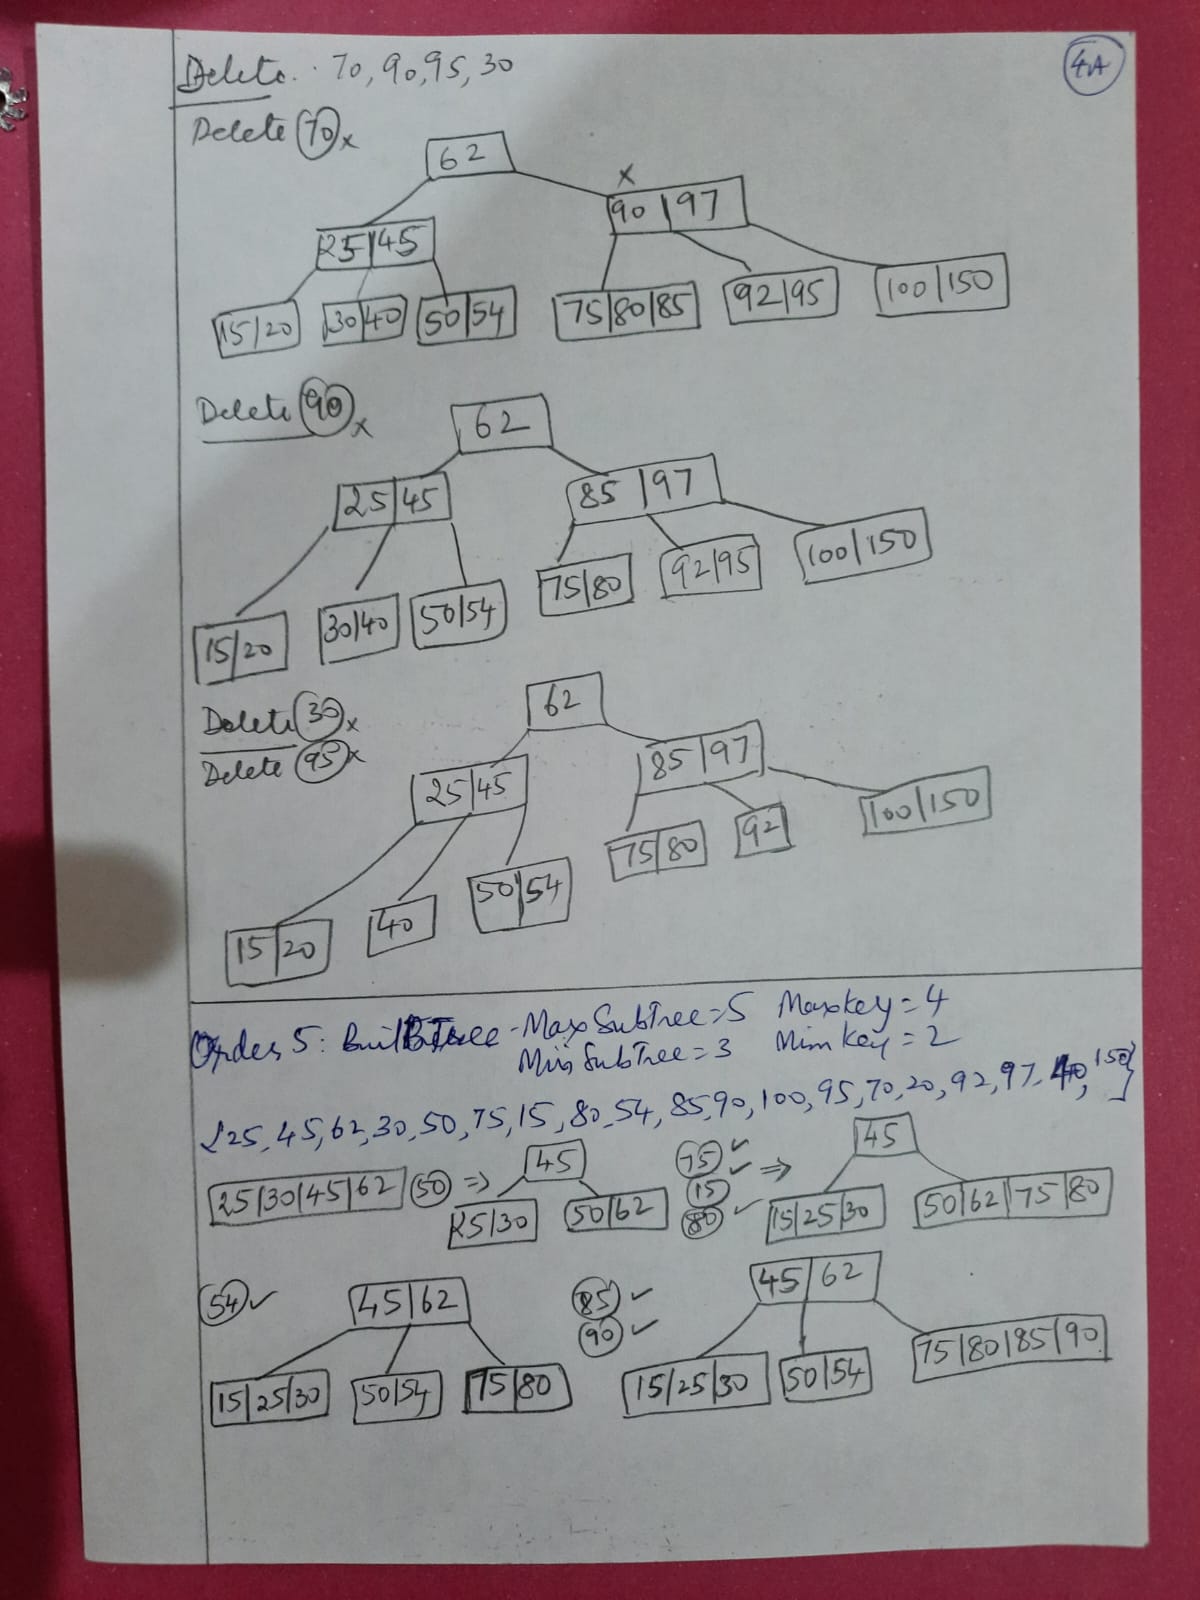 Delete. 70, 90, 95, 30
4A
Delete 70 x
62
x
90|97
25|45
15|20 30|40 50|54 75|80|85 92|95 100|150
Delete 90 x
62
25|45 85|97
15|20 30|40 50|54 75|80 92|95 100|150
Delete 30 x
Delete 95 x
62
25|45 85|97
15|20 40 50|54 75|80 92 100|150
Order 5: - Max SubTree = 5 Maxkey = 4
Min SubTree = 3 Min key = 2
{25, 45, 62, 30, 50, 75, 15, 80, 54, 85, 90, 100, 95, 70, 20, 92, 97, 40, 150}
25|30|45|62 50 ⇒ 45
25|30 50|62
75 ✓
15 ✓
80 ✓
⇒ 45
15|25|30 50|62|75|80
54 ✓ 45|62
15|25|30 50|54 75|80
85 ✓
90 ✓
45|62
15|25|30 50|54 75|80|85|90